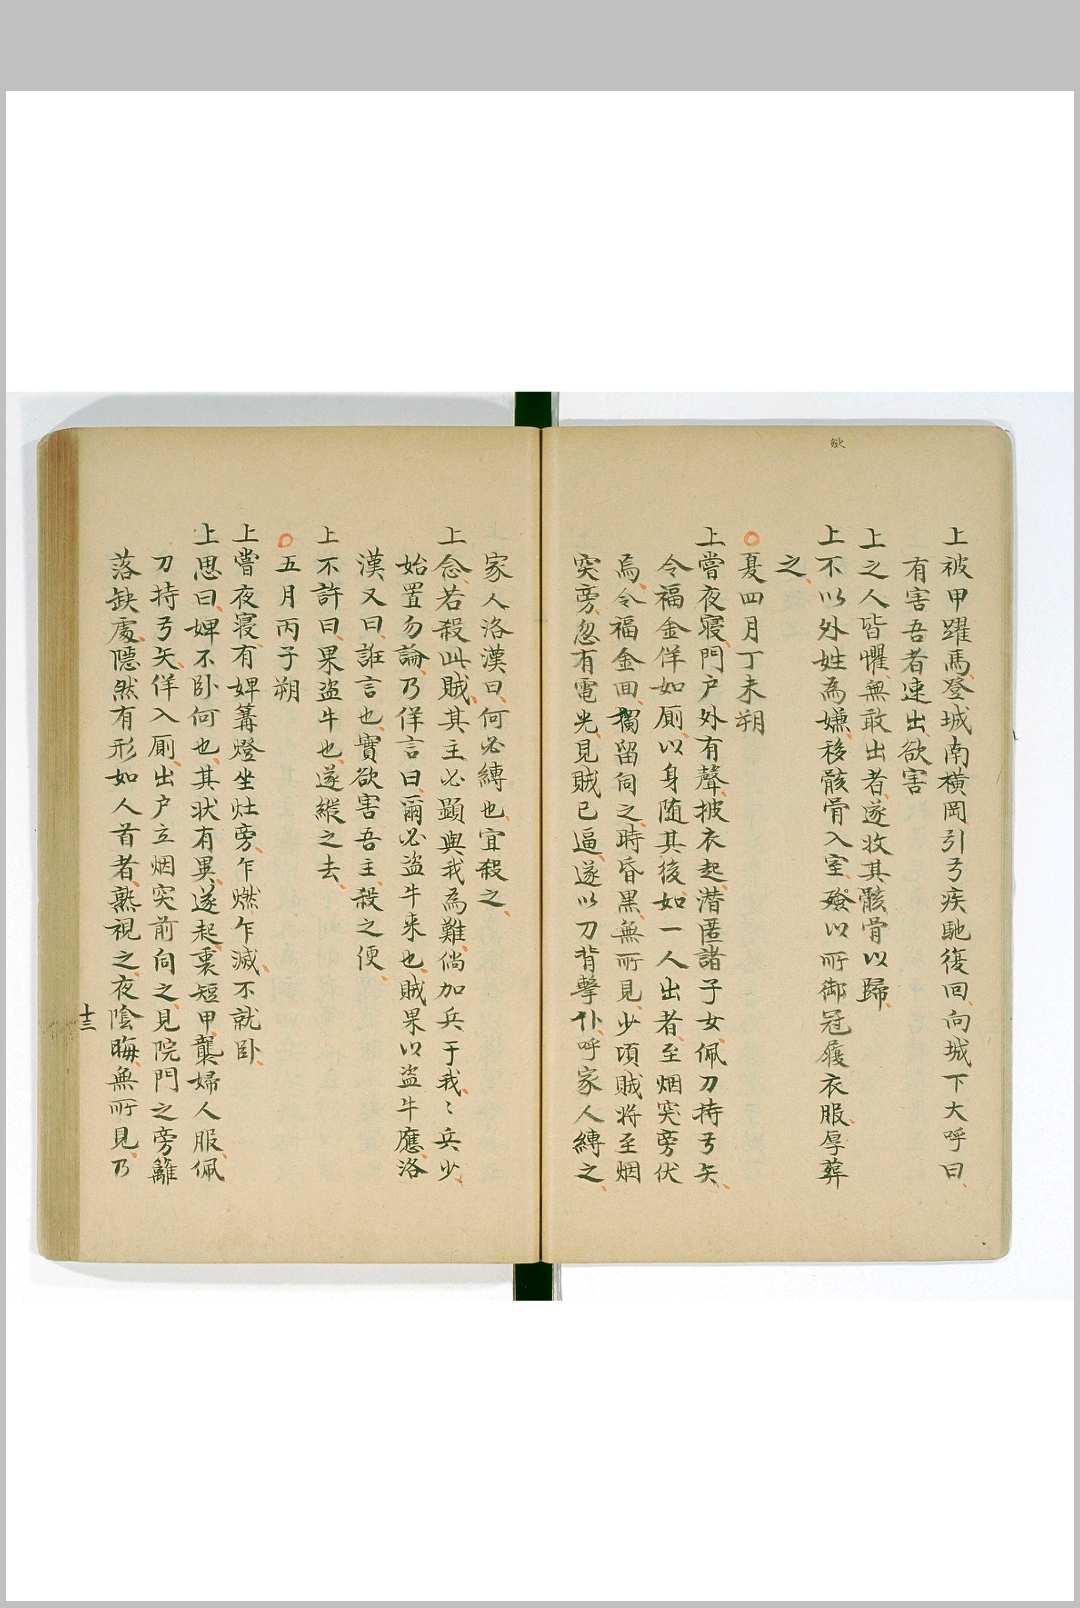 上被甲躍馬登城南橫岡引弓疾馳復回向城下大呼曰
有害吾者速出欲害
上之人皆懼無敢出者遂收其骸骨以歸
上不以外姓為嫌移骸骨入室殮以所御冠履衣服厚葬
之
夏四月丁未朔
上嘗夜寢門户外有聲披衣起潛匿諸子女佩刀持弓矢
令福金佯如厠以身随其後如一人出者至烟突旁伏
焉令福金回獨留伺之時昏黑無所見少頃賊将至烟
突旁忽有電光見賊已逼遂以刀背擊仆呼家人縛之
家人洛漢曰何必縛也宜殺之
上念若殺此賊其主必顕與我為難倘加兵于我〻兵少
始置勿論乃佯言曰爾必盜牛来也賊果以盜牛應洛
漢又曰誑言也實欲害吾主殺之便
上不許曰果盜牛也遂縱之去
五月丙子朔
上嘗夜寢有婢篝燈坐灶旁乍燃乍滅不就卧
上思曰婢不卧何也其状有異遂起裏短甲襲婦人服佩
刀持弓矢佯入厠出户立烟突前向之見院門之旁籬
落缺處隱然有形如人首者熟視之夜陰晦無所見乃
十三